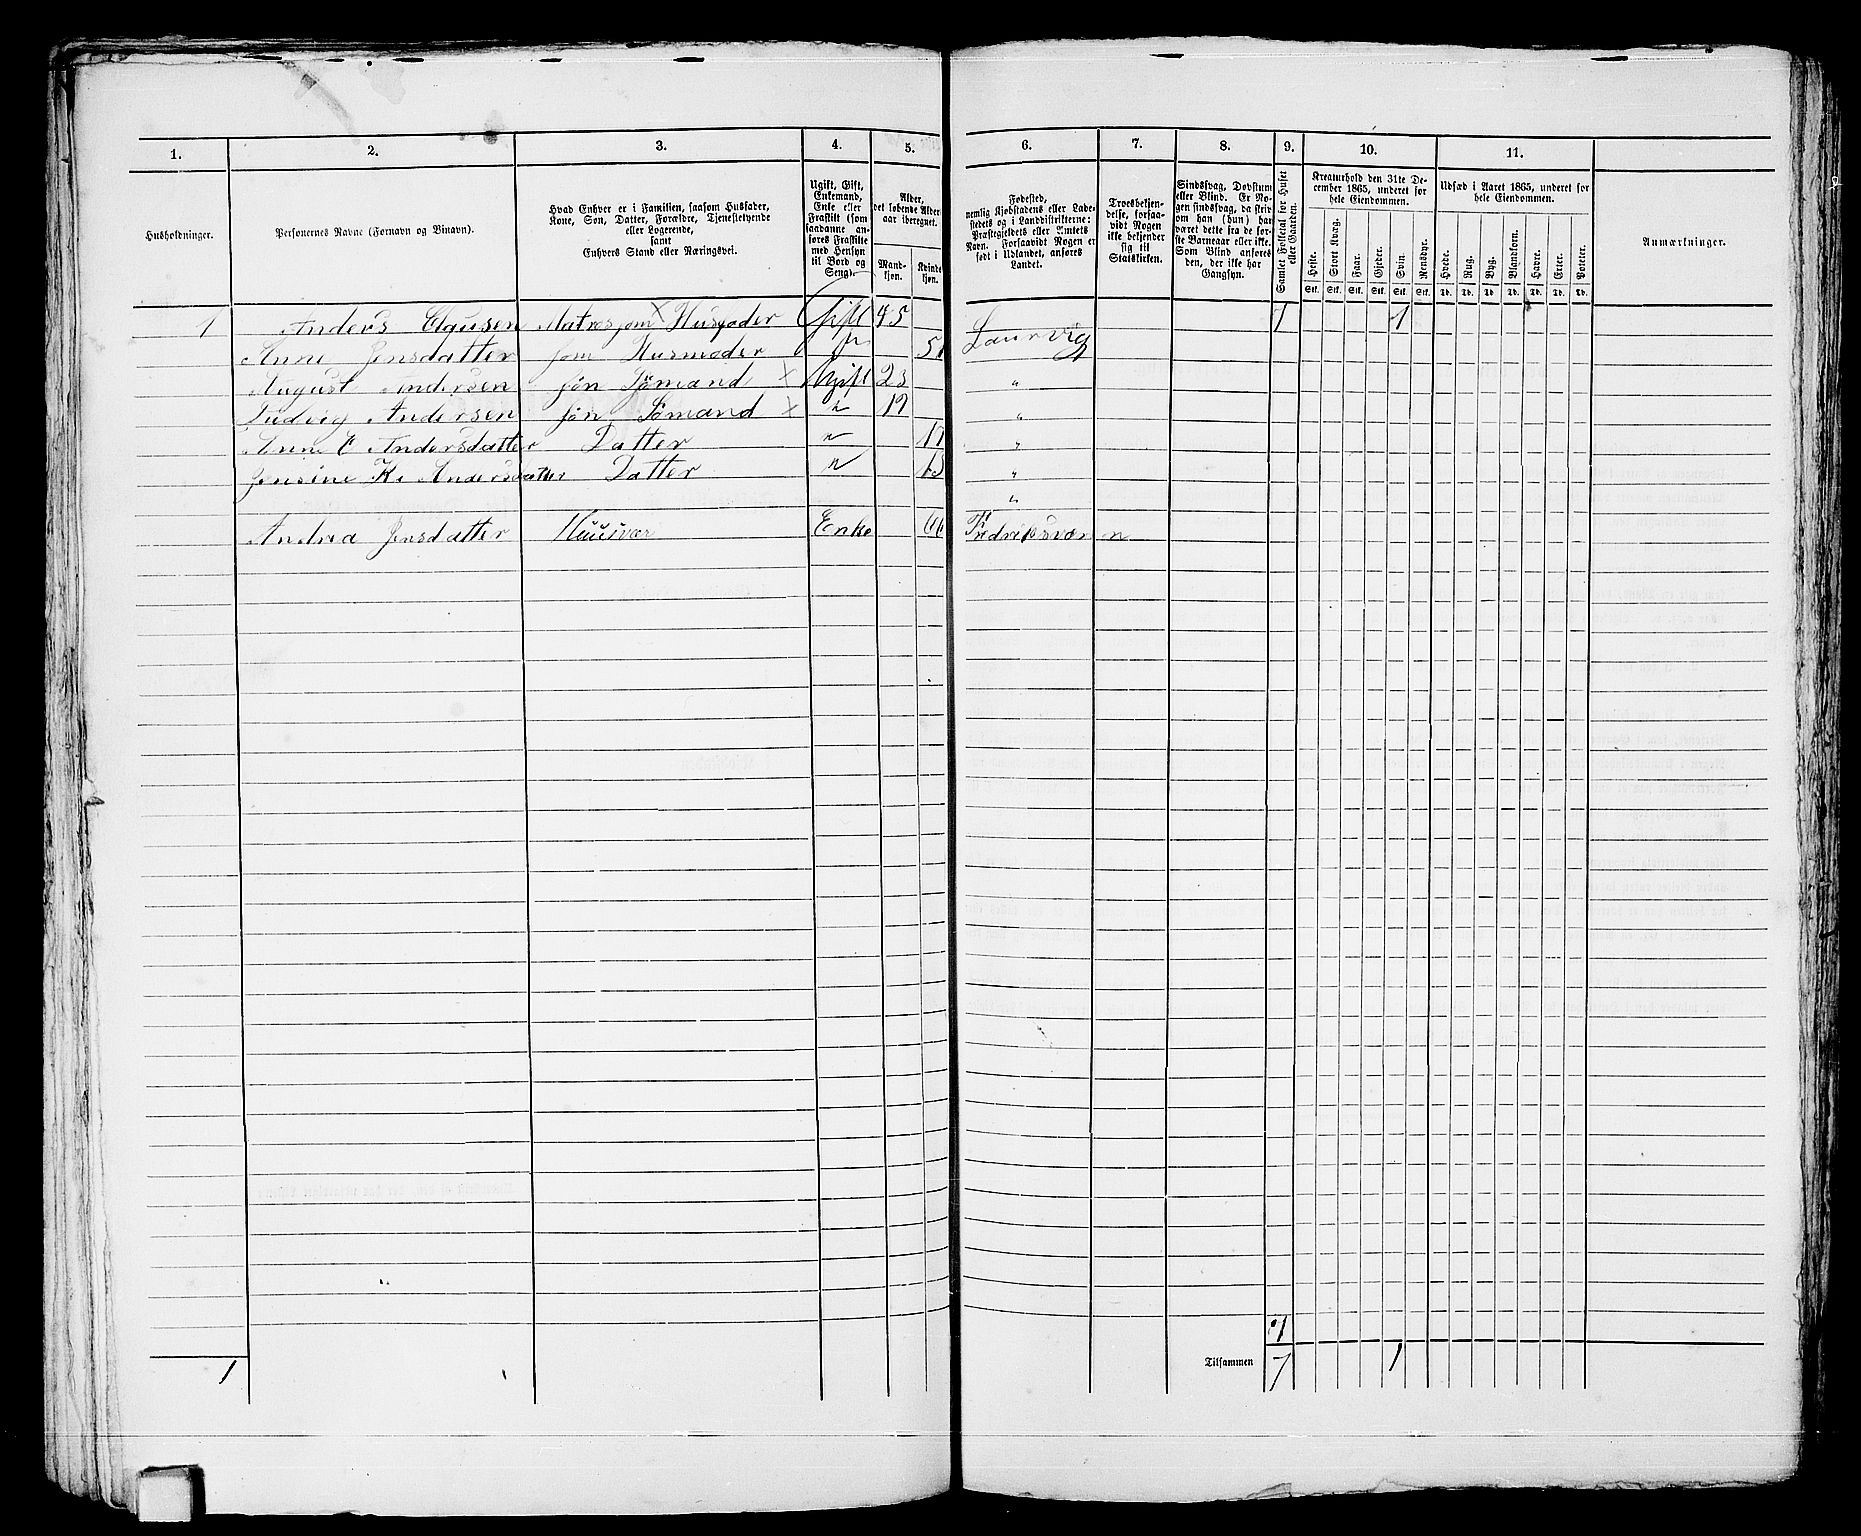 1. 2. 3. 4. 5. 6. 7. 8. 9. 10. 11.
Husholdninger.
Personernes Navne (Fornavn og Binavn).
Hvad Enhver er i Familien, saasom Husfader,
Kone, Søn, Datter, Forældre, Tjenestetyende
eller Logerende,
samt
Enhvers Stand eller Næringsvei.
Ugift, Gift,
Enkemand,
Enke eller
Fraskilt (som
saadanne an-
føres Fraskilte
med Hensyn
til Bord og
Seng).
Alder,
det løbende Alders-
aar iberegnet.
Mand-
kjøn.
Kvinde-
kjøn.
Fødested,
nemlig Kjøbstadens eller Lade-
stedets og i Landdistrikterne:
Præstegjeldets eller Amtets
Navn. Forsaavidt Nogen er
født i Udlandet, anføres
Landet.
Troesbekjen-
delse, forsaa-
vidt Nogen
ikke bekjender
sig til
Statskirken.
Sindssvag, Døvstum
eller Blind. Er No-
gen sindssvag, da skriv
om han (hun) har
været dette fra de før-
ste Barneaar eller ikke.
Som Blind anføres
den, der ikke har
Gangsyn.
Samlet Folketal for Huset
eller Gaarden.
Kreaturhold den 31te De-
cember 1865, underet for
hele Eiendommen.
Heste. Stort Kvæg. Faar. Gjeder. Svin. Rensdyr.
Stk. Stk. Stk. Stk. Stk. Stk.
Udsæd i Aaret 1865, underet for
hele Eiendommen.
Hvede. Rug. Byg. Blandkorn. Havre. Erter. Poteter.
Td. Td. Td. Td. Td. Td. Td.
Anmærkninger.
1 Anders Clausen Matros som Husfader Gift 45 Laurvig 7 1
Anne Jensdatter som Husmoder 51
August Andersen søn Sømand Ugift 23 "
Ludvig Andersen søn Sømand " 19 "
Anne E Andersdatter Datter " 17 "
Jensine K. Andersdatter Datter " 13 "
"
Andrea Jensdatter Enke 66 Fredriksværn
7
Tilsammen 7 1
1